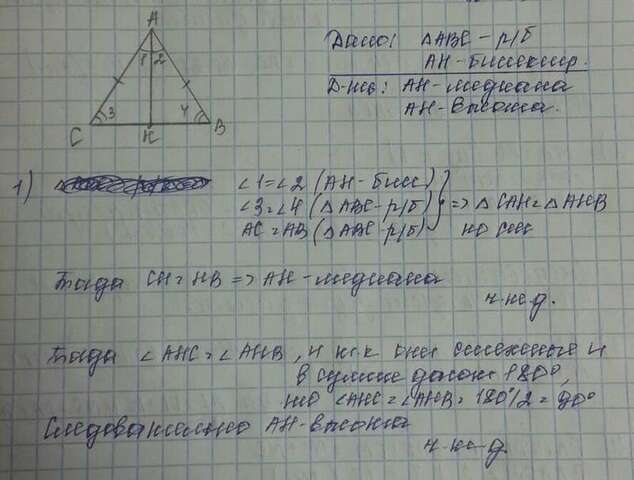 A
1 2
3 4
C H B
Дано: △ABC - р/б
AH - биссектр.
Д-ть: AH - медиана
AH - высота.
1) ∠1 = ∠2 (AH - бисс)
∠3 = ∠4 (△ABC - р/б) } => △CAH = △AHB
AC = AB (△ABC - р/б) по
Тогда CH = HB => AH - медиана
ч.т.д.
Тогда ∠AHC = ∠AHB, и т.к они смежные и
в сумме дают 180°,
то ∠AHC = ∠AHB = 180°/2 = 90°
Следовательно AH - высота
ч-т-д.